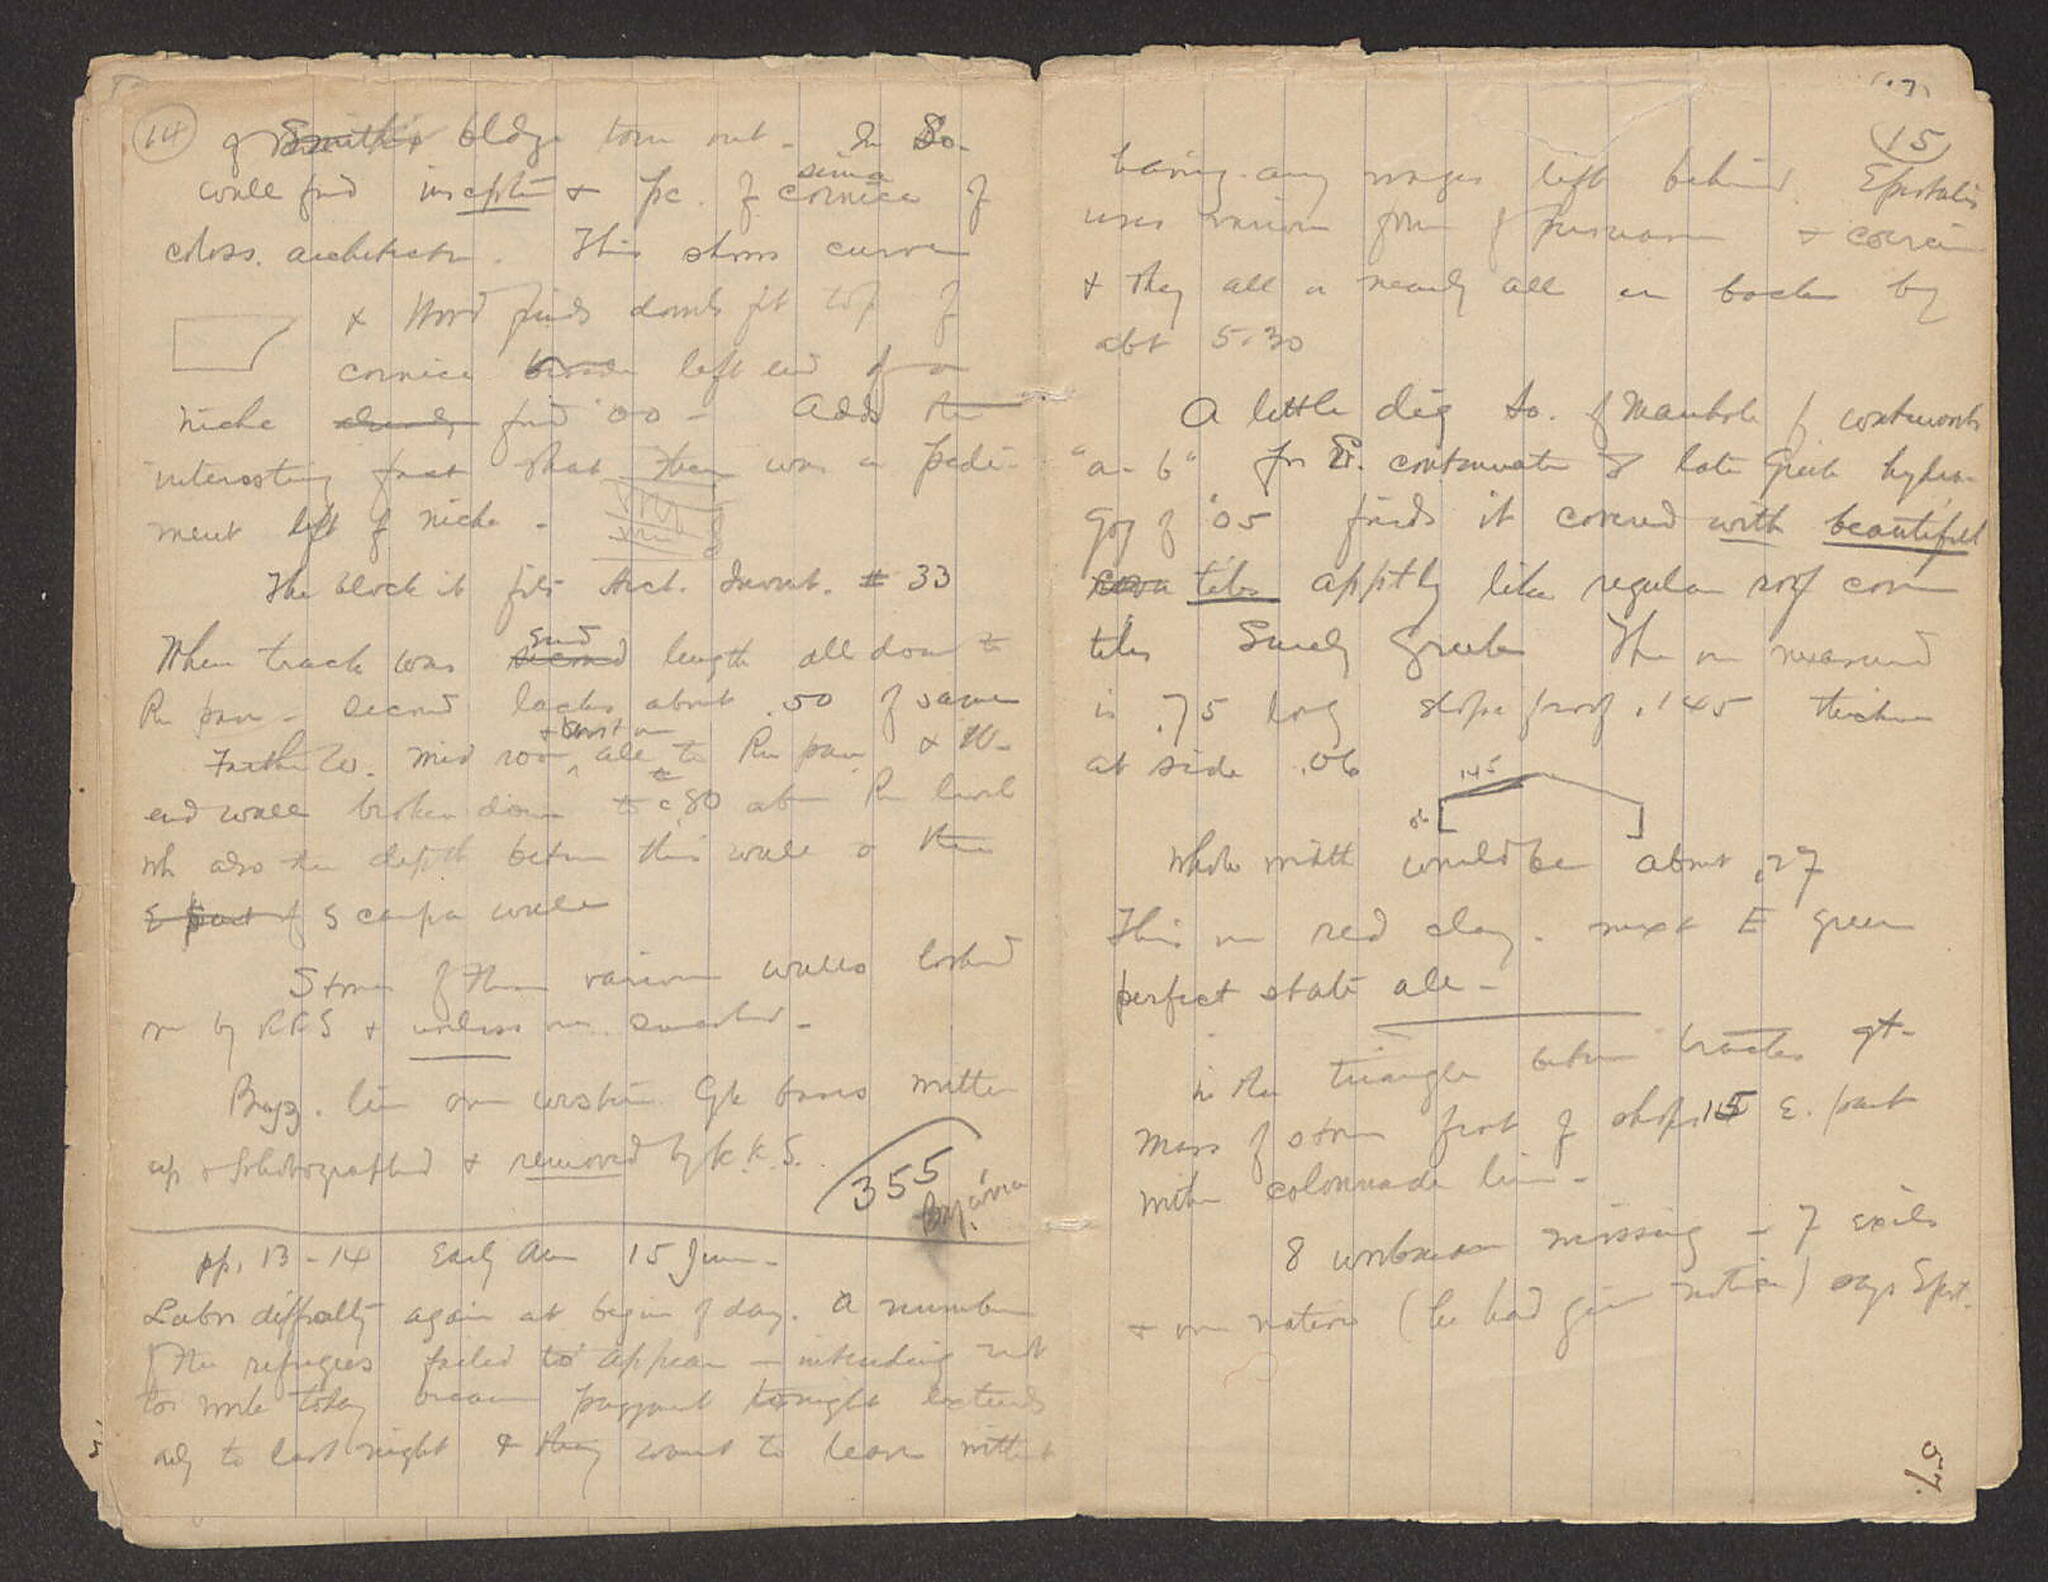 14
of Smith's bldg torn out - In So.
wall find inscription & pc. of cornice of
sima
coloss. architecture. This shows curve
& Wood finds dowels fit top of
cornice left end of
niche already find '00 - Adds the
interesting fact that there was a pedi-
ment left of niche -
The block it fits Arch. Invent. # 33
When track was second length all down to
end
Rn pave - second lacks about .50 of same
Farther W. mid room all to Rn pave & W-
end wall broken down to c .80 above Rn level
wh also the depth between this wall & the
E part of Scarpa wall
Stones of these various walls looked
over by RKS & unless ins. discarded -
Byz. line over western Gk bases written
up & photographed & removed by R.K.S.
355
pp. 13-14 Early Am 15 June -
Labor difficulty again at begin of day. A number
of the refugees failed to appear - intending not
to work today because payment tonight extends
only to last night & they want to leave without
15
having any wages left behind. Epstatis
uses various forms of persuasion & coercion
& they all or nearly all are back by
abt 5.30
A little dig So. of Manhole of waterworks
"a-b" for E. continuation of late Greek hydra-
gog of '05 finds it covered with beautiful
tiles apptly like regular roof cover
tiles Surely Greek The one measured
is .75 long slope of roof .145 thickness
at side .06
.145
.06
Whole width would be about .27
This one red clay. next E green
perfect state all -
in the triangle between tracks gt.
mass of stones front of shops 15 E. part
with colonnade line -
8 workmen missing - 7 exiles
& one native (he had given notice) says Epst.
57.